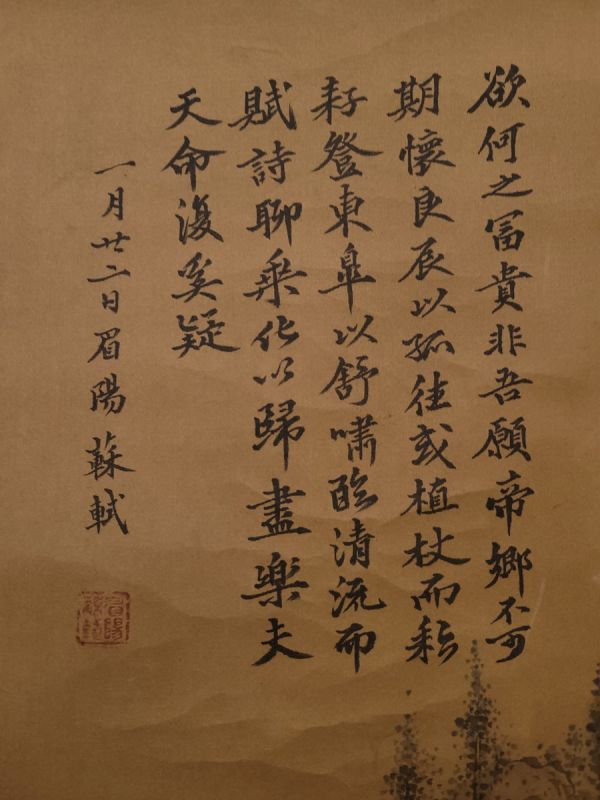 欲何之冨貴非吾願帝鄉不可
期懷良辰以孤往或植杖而耘
耔登東皐以舒嘯臨清流而
賦詩聊乘化以歸盡樂夫
天命復奚疑
一月廿二日眉陽蘇軾
眉陽蘇軾